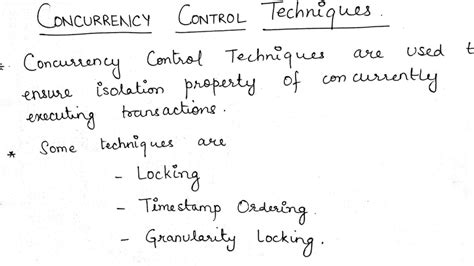 CONCURRENCY CONTROL TECHNIQUES.
* Concurrency Control Techniques are used t
ensure isolation property of concurrently
executing transactions.
* Some techniques are
- Locking
- Timestamp Ordering.
- Granularity Locking.